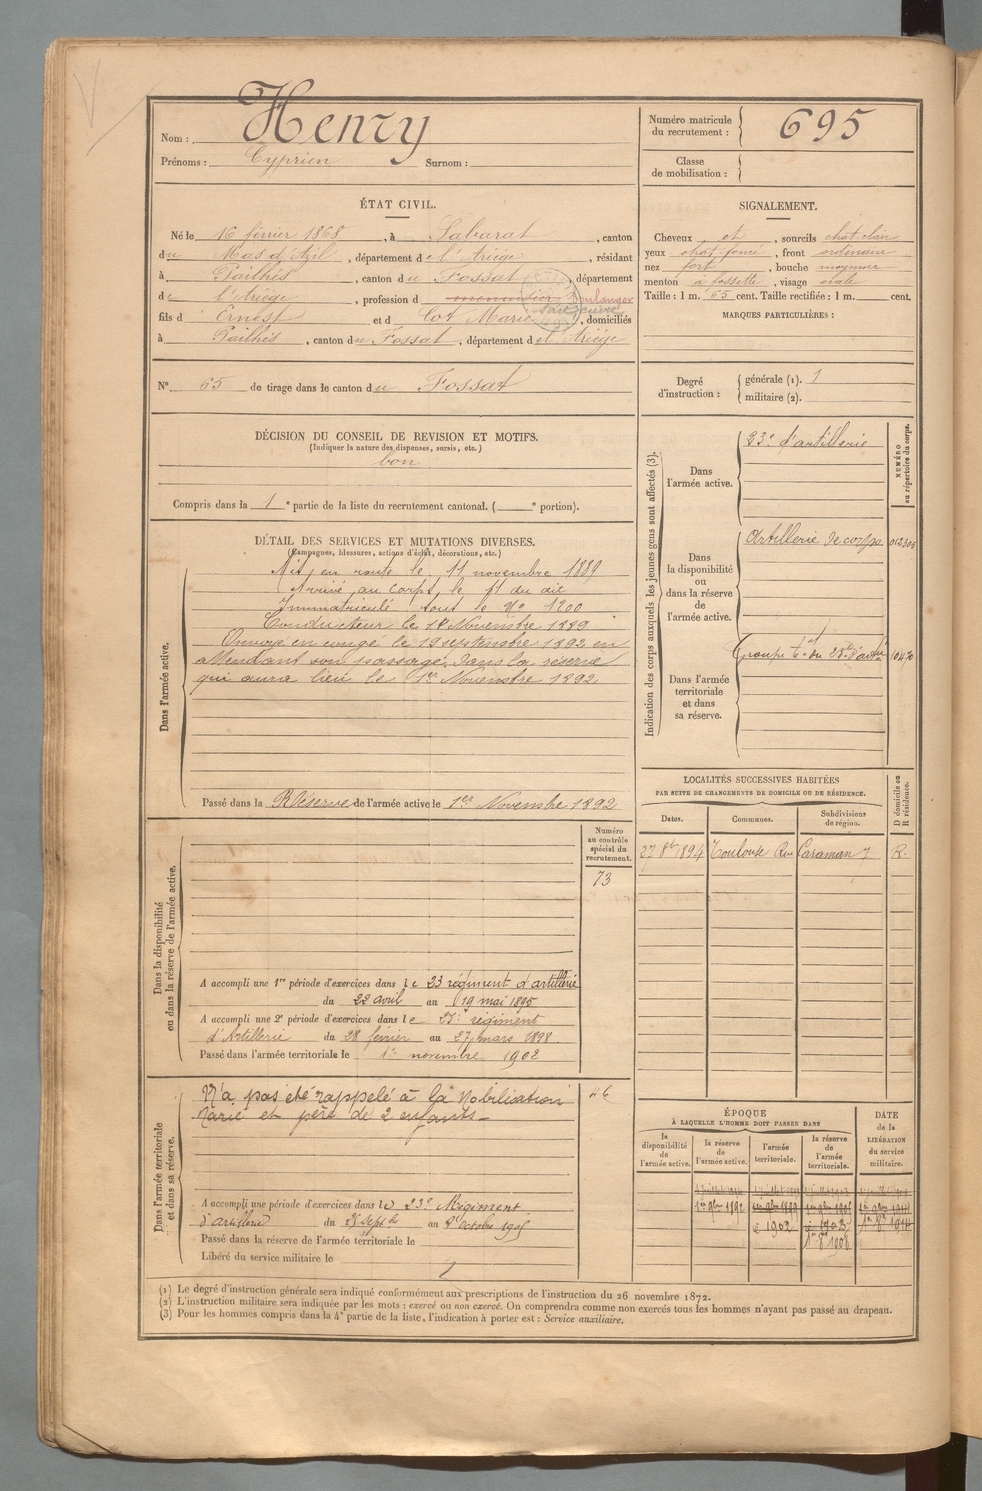 Nom : Henry
Prénoms : Cyprien Surnom :
Numéro matricule du recrutement : 695
Classe de mobilisation :
ÉTAT CIVIL.
Né le 16 février 1868, à Sabarat, canton
du Mas d'Azil, département de l'Ariège, résidant
à Pailhès, canton du Fossat, département
de l'Ariège, profession d Boulanger
fils d Ernest et d Cot Marie, domiciliés
à Pailhès, canton du Fossat, département de l'Ariège
SIGNALEMENT.
Cheveux et, sourcils chat. clair
yeux chat. foncé, front ordinaire
nez fort, bouche moyenne
menton à fossette, visage ovale
Taille : 1 m. 65 cent. Taille rectifiée : 1 m. cent.
MARQUES PARTICULIÈRES :
N° 65 de tirage dans le canton du Fossat
Degré d'instruction : générale (1). 1
militaire (2).
DÉCISION DU CONSEIL DE REVISION ET MOTIFS.
(Indiquer la nature des dispenses, sursis, etc.)
bon
Compris dans la 1e partie de la liste du recrutement cantonal. ( e portion).
DÉTAIL DES SERVICES ET MUTATIONS DIVERSES.
(Campagnes, blessures, actions d'éclat, décorations, etc.)
Dans l'armée active.
Mis en route le 11 novembre 1889
Arrivé au corps le 11 du dit
Immatriculé sous le No 1200
Conducteur le 18 Novembre 1889
Envoyé en congé le 19 septembre 1892 en
attendant son passage dans la réserve
qui aura lieu le 1er Novembre 1892
Passé dans la Réserve de l'armée active le 1er Novembre 1892
Indication des corps auxquels les jeunes gens sont affectés (3).
NUMÉRO au répertoire du corps.
Dans l'armée active.
23e d'artillerie
Dans la disponibilité ou dans la réserve de l'armée active.
Artillerie de corps
Dans l'armée territoriale et dans sa réserve.
Groupe tal du 23e d'artie
LOCALITÉS SUCCESSIVES HABITÉES
PAR SUITE DE CHANGEMENTS DE DOMICILE OU DE RÉSIDENCE.
Dates. Communes. Subdivisions de région. D domicile ou R résidence.
27 8bre 1894 Toulouse Rue Caraman 7 R.
Dans la disponibilité ou dans la réserve de l'armée active.
Numéro au contrôle spécial du recrutement.
73
A accompli une 1re période d'exercices dans le 23 régiment d'artillerie
du 22 avril au 19 mai 1895
A accompli une 2e période d'exercices dans le 23e régiment
d'Artillerie du 28 février au 27 mars 1898
Passé dans l'armée territoriale le 1er novembre 1902
Dans l'armée territoriale et dans sa réserve.
N'a pas été rappelé à la Mobilisation
Marié et père de 2 enfants
46
A accompli une période d'exercices dans le 23e Régiment
d'artillerie du 25 septbre au 8 octobre 1905
Passé dans la réserve de l'armée territoriale le
Libéré du service militaire le
ÉPOQUE
À LAQUELLE L'HOMME DOIT PASSER DANS
la disponibilité de l'armée active.
la réserve de l'armée active.
l'armée territoriale.
la réserve de l'armée territoriale.
DATE de la LIBÉRATION du service militaire.
1er 9bre 1892
1902
1908
(1) Le degré d'instruction générale sera indiqué conformément aux prescriptions de l'instruction du 26 novembre 1872.
(2) L'instruction militaire sera indiquée par les mots : exercé ou non exercé. On comprendra comme non exercés tous les hommes n'ayant pas passé au drapeau.
(3) Pour les hommes compris dans la 4e partie de la liste, l'indication à porter est : Service auxiliaire.